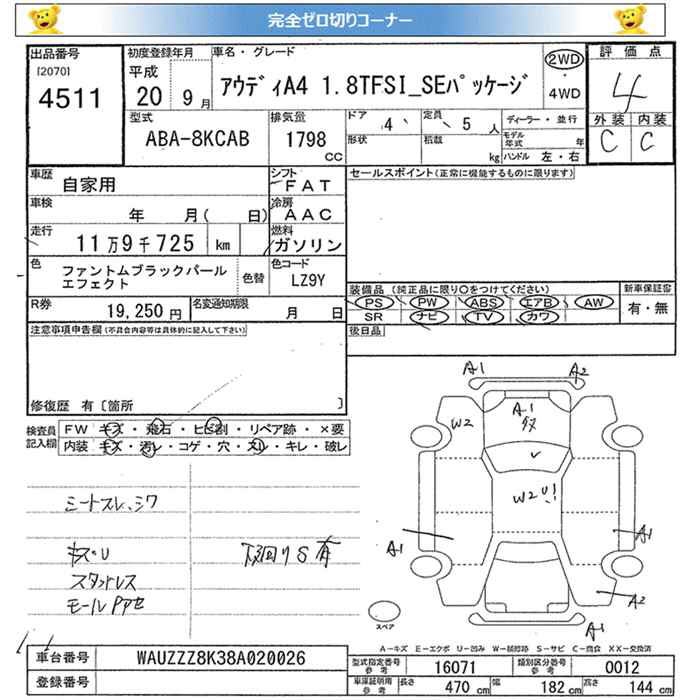 完全ゼロ切りコーナー
出品番号
[2070]
4511
初度登録年月
平成
20 9 月
車名・グレード
アウディA4 1.8TFSI_SEパッケージ
2WD
・
4WD
評価点
4
外装 内装
C C
型式
ABA-8KCAB
排気量
1798
CC
ドア
4
定員
5 人
形状
積載
kg
ディーラー・並行
モデル年式
年
ハンドル 左・右
車歴
自家用
シフト
FAT
車検
年 月( 日)
冷房
AAC
走行
11万9千725 km
燃料
ガソリン
色
ファントムブラックパール
エフェクト
色替
色コード
LZ9Y
R券
19,250 円
名変通知期限
月 日
セールスポイント(正常に機能するものに限ります)
装備品 (純正品に限り○をつけてください)
新車保証書
PS PW ABS エアB AW
SR ナビ TV カワ
有・無
後日品
注意事項申告欄(不具合内容等は具体的に記入して下さい)
修復歴 有〔箇所 〕
検査員
記入欄
FW キズ・飛石・ヒビ割・リペア跡・×要
内装 キズ・汚レ・コゲ・穴・スレ・キレ・破レ
シートスレ、シワ
キズU
下廻りS有
スタットレス
A1
A2
W2
A1
W2
A1
A1
A2
A1
スペア
A-キズ E-エクボ U-凹み W-補修跡 S-サビ C-腐食 XX-交換済
車台番号
WAUZZZ8K38A020026
登録番号
型式指定番号
参考
16071
類別区分番号
参考
0012
車庫証明用
参考
長さ
470 cm
幅
182 cm
高さ
144 cm